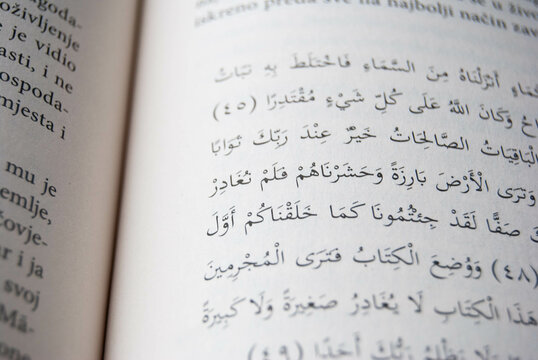 goda-
oživljenje
je vidio
asti, i ne
ospoda-
mjesta i
mu je
emlje,
čovje-
ar i ja
svoj
Mā-
one
se u živo
iskreno preda sve na najbolji način zav
السَّمَاءِ فَاخْتَلَطَ بِهِ نَبَاتُ
وَكَانَ اللَّهُ عَلَى كُلِّ شَيْءٍ مُقْتَدِرًا (٤٥)
الْبَاقِيَاتُ الصَّالِحَاتُ خَيْرٌ عِنْدَ رَبِّكَ ثَوَابًا
وَتَرَى الْأَرْضَ بَارِزَةً وَحَشَرْنَاهُمْ فَلَمْ نُغَادِرْ
صَفًّا لَقَدْ جِئْتُمُونَا كَمَا خَلَقْنَاكُمْ أَوَّلَ
(٤٨) وَوُضِعَ الْكِتَابُ فَتَرَى الْمُجْرِمِينَ
هَذَا الْكِتَابِ لَا يُغَادِرُ صَغِيرَةً وَلَا كَبِيرَةً
رَبُّكَ أَحَدًا (٤٩)